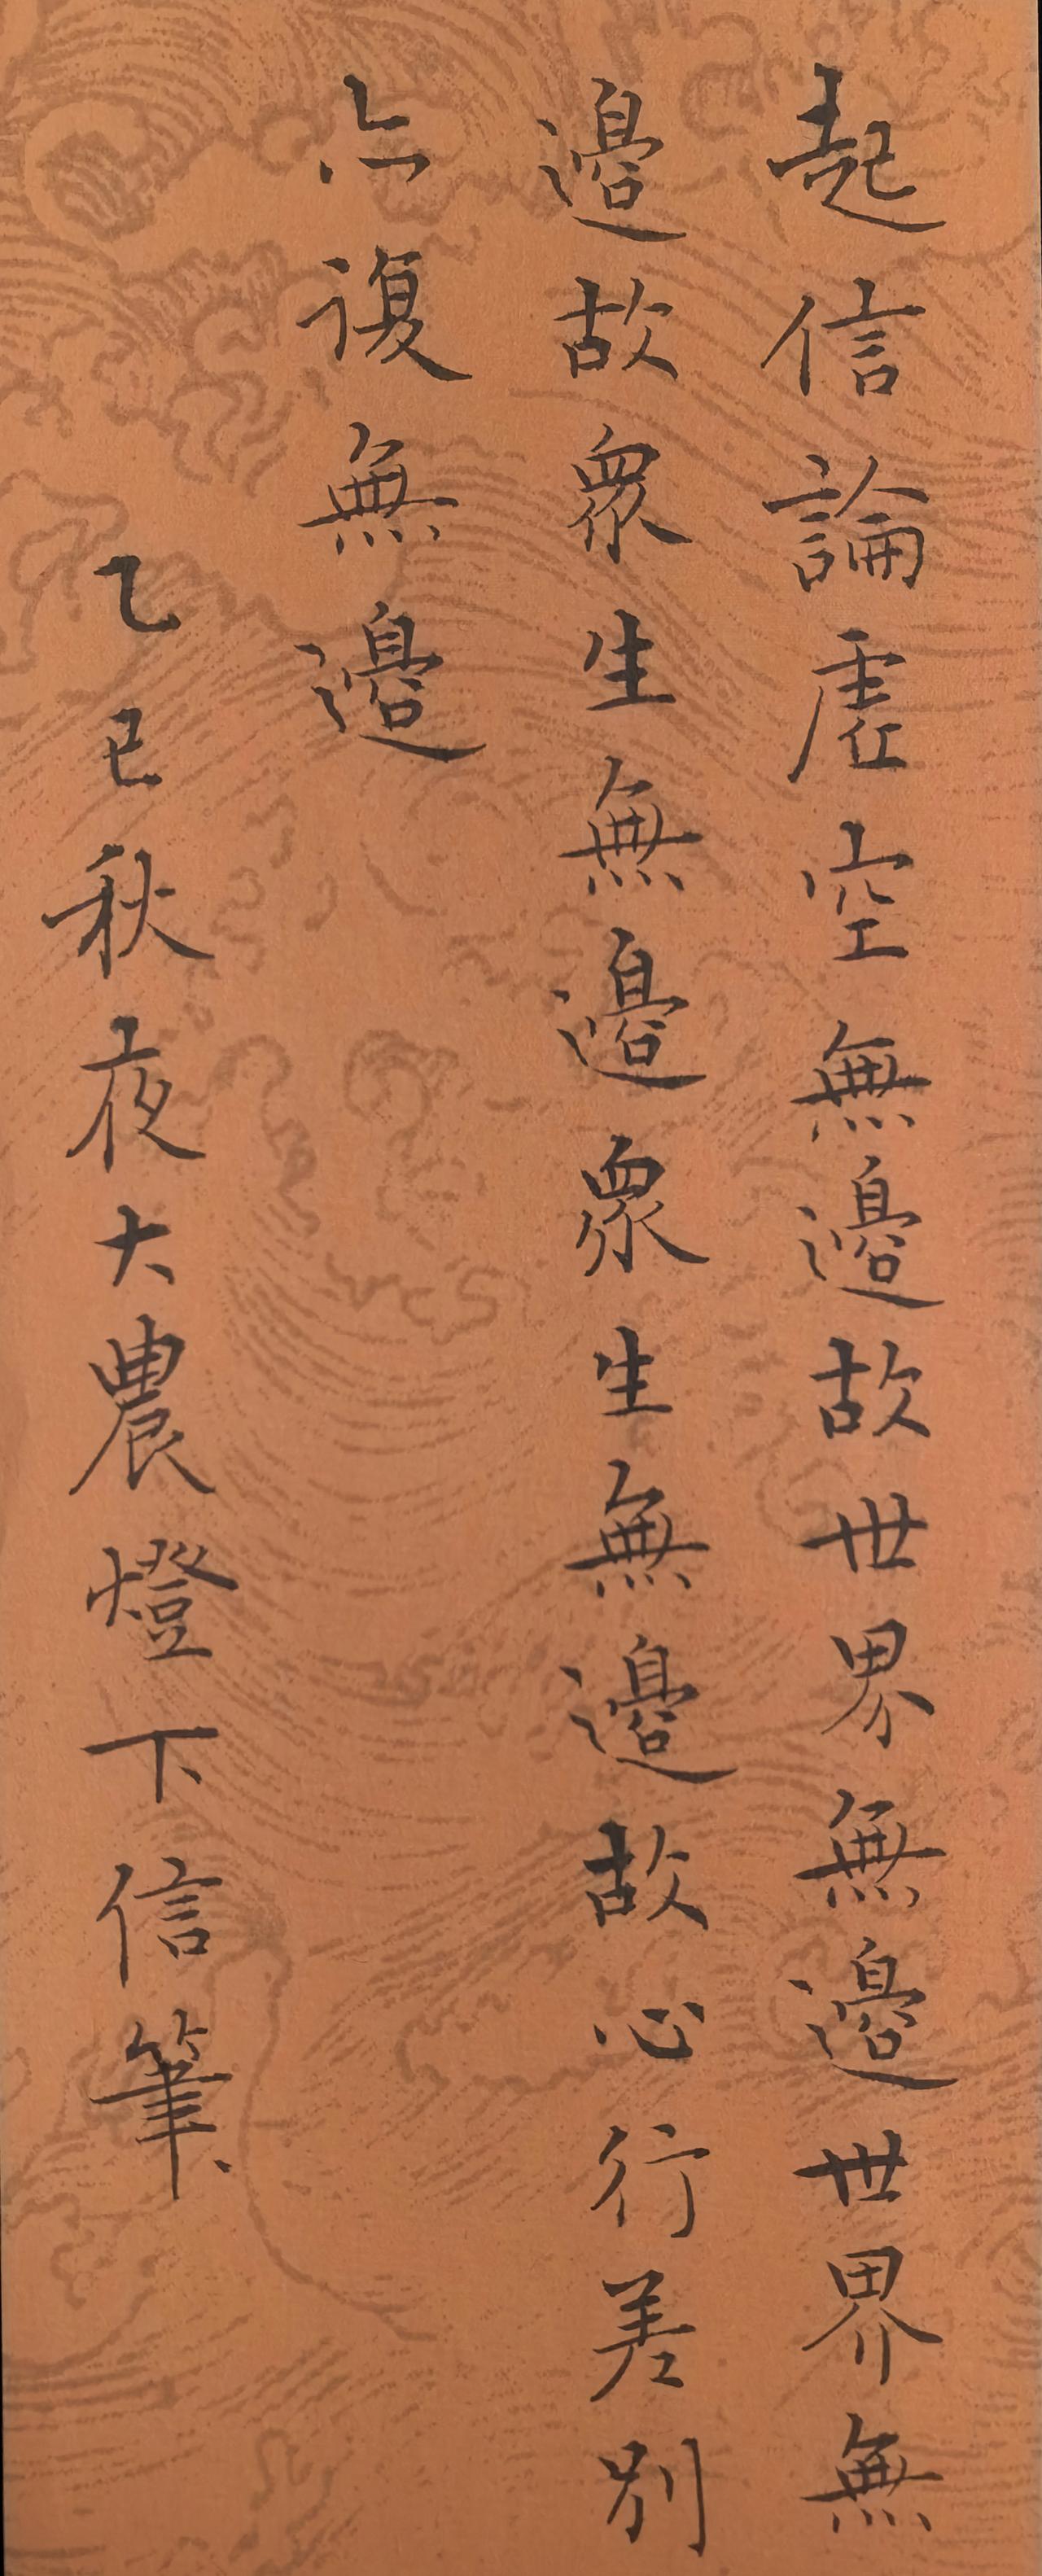 起信論虛空無邊故世界無邊世界無
邊故眾生無邊眾生無邊故心行差別
亦復無邊
乙巳秋夜大農燈下信筆